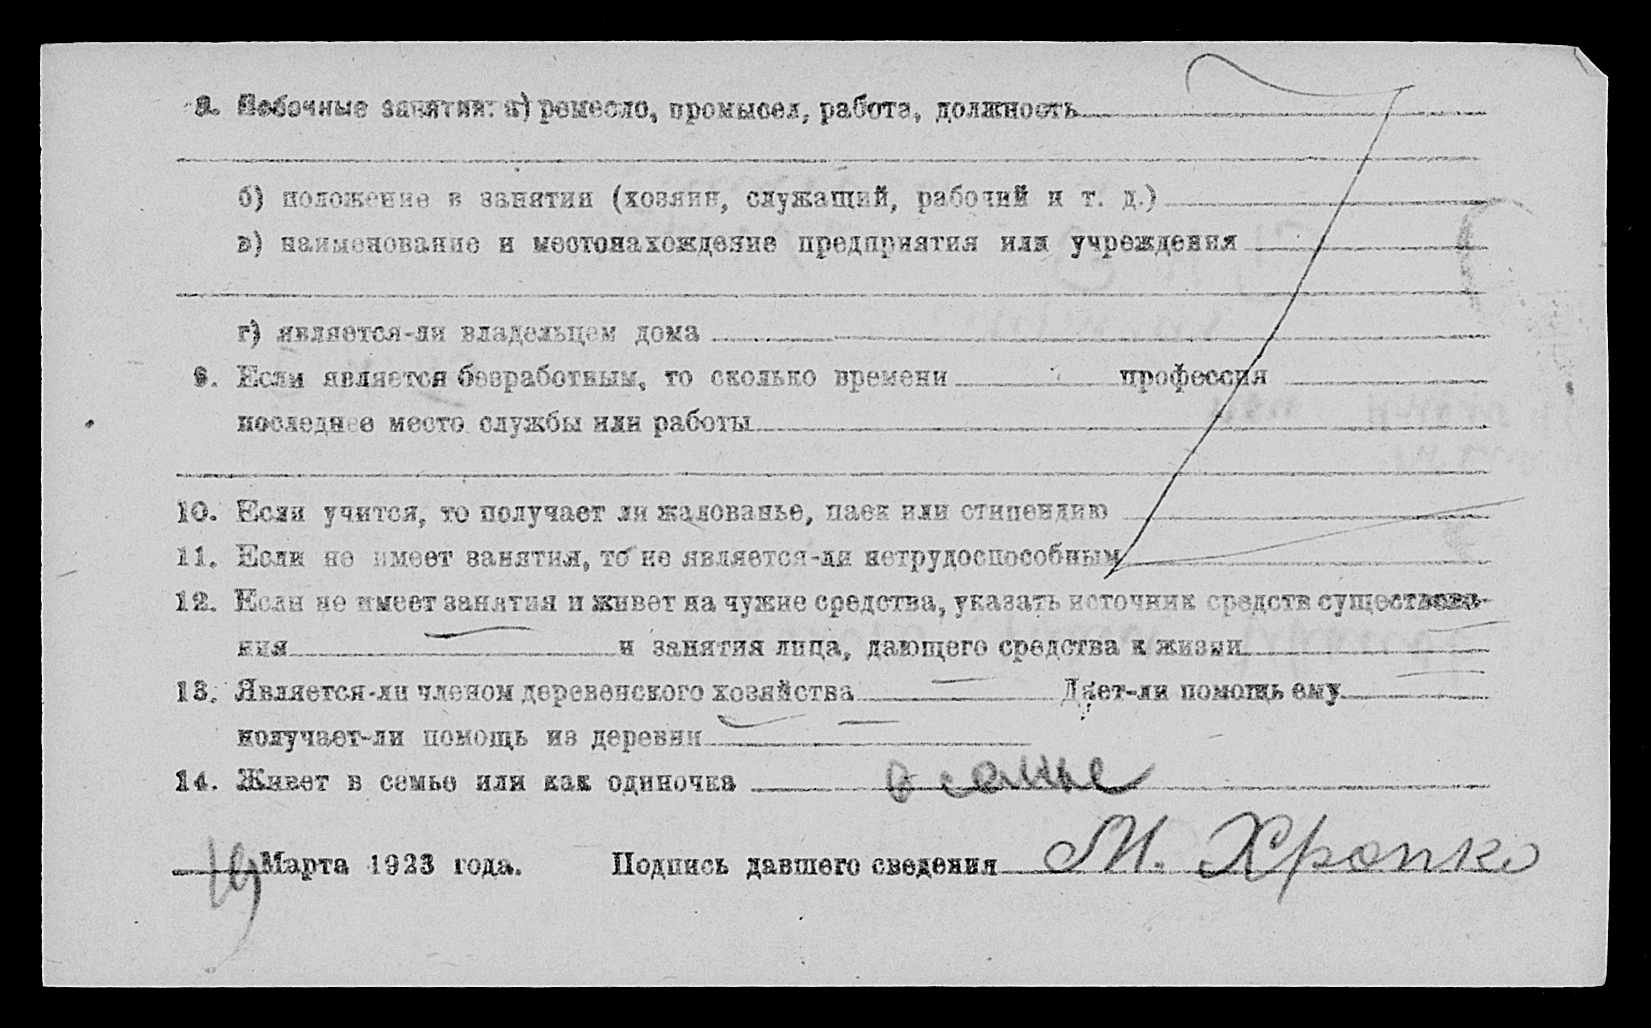 8. Побочные занятия: а) ремесло, промысел, работа, должность
б) положение в занятии (хозяин, служащий, рабочий и т. д.)
в) наименование и местонахождение предприятия или учреждения
г) является-ли владельцем дома
9. Если является безработным, то сколько времени профессия
последнее место службы или работы
10. Если учится, то получает ли жалованье, паек или стипендию
11. Если не имеет занятия, то не является-ли нетрудоспособным
12. Если не имеет занятия и живет на чужие средства, указать источник средств существова-
ния — и занятия лица, дающего средства к жизни —
13. Является-ли членом деревенского хозяйства — Дает-ли помощь ему —
получает-ли помощь из деревни —
14. Живет в семье или как одиночка в семье
19 Марта 1923 года. Подпись давшего сведения М. Хропко